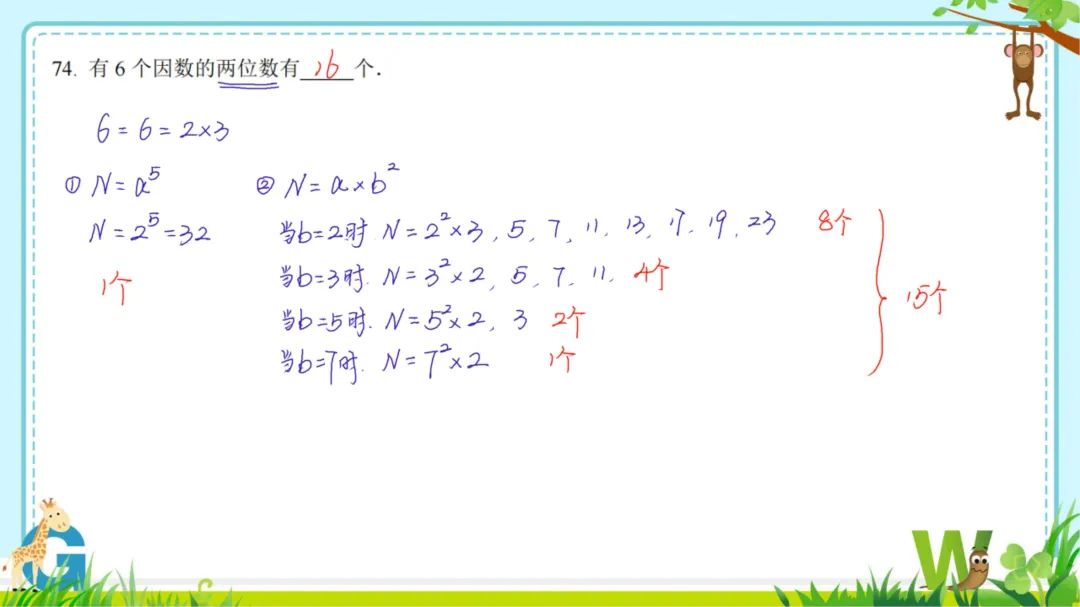 74. 有 6 个因数的两位数有 16 个.
6 = 6 = 2×3
① N = a⁵
N = 2⁵ = 32
1个
② N = a × b²
当b=2时. N = 2² × 3, 5, 7, 11, 13, 17, 19, 23 8个
当b=3时. N = 3² × 2, 5, 7, 11, 4个
当b=5时. N = 5² × 2, 3 2个
当b=7时. N = 7² × 2 1个
15个
G
W